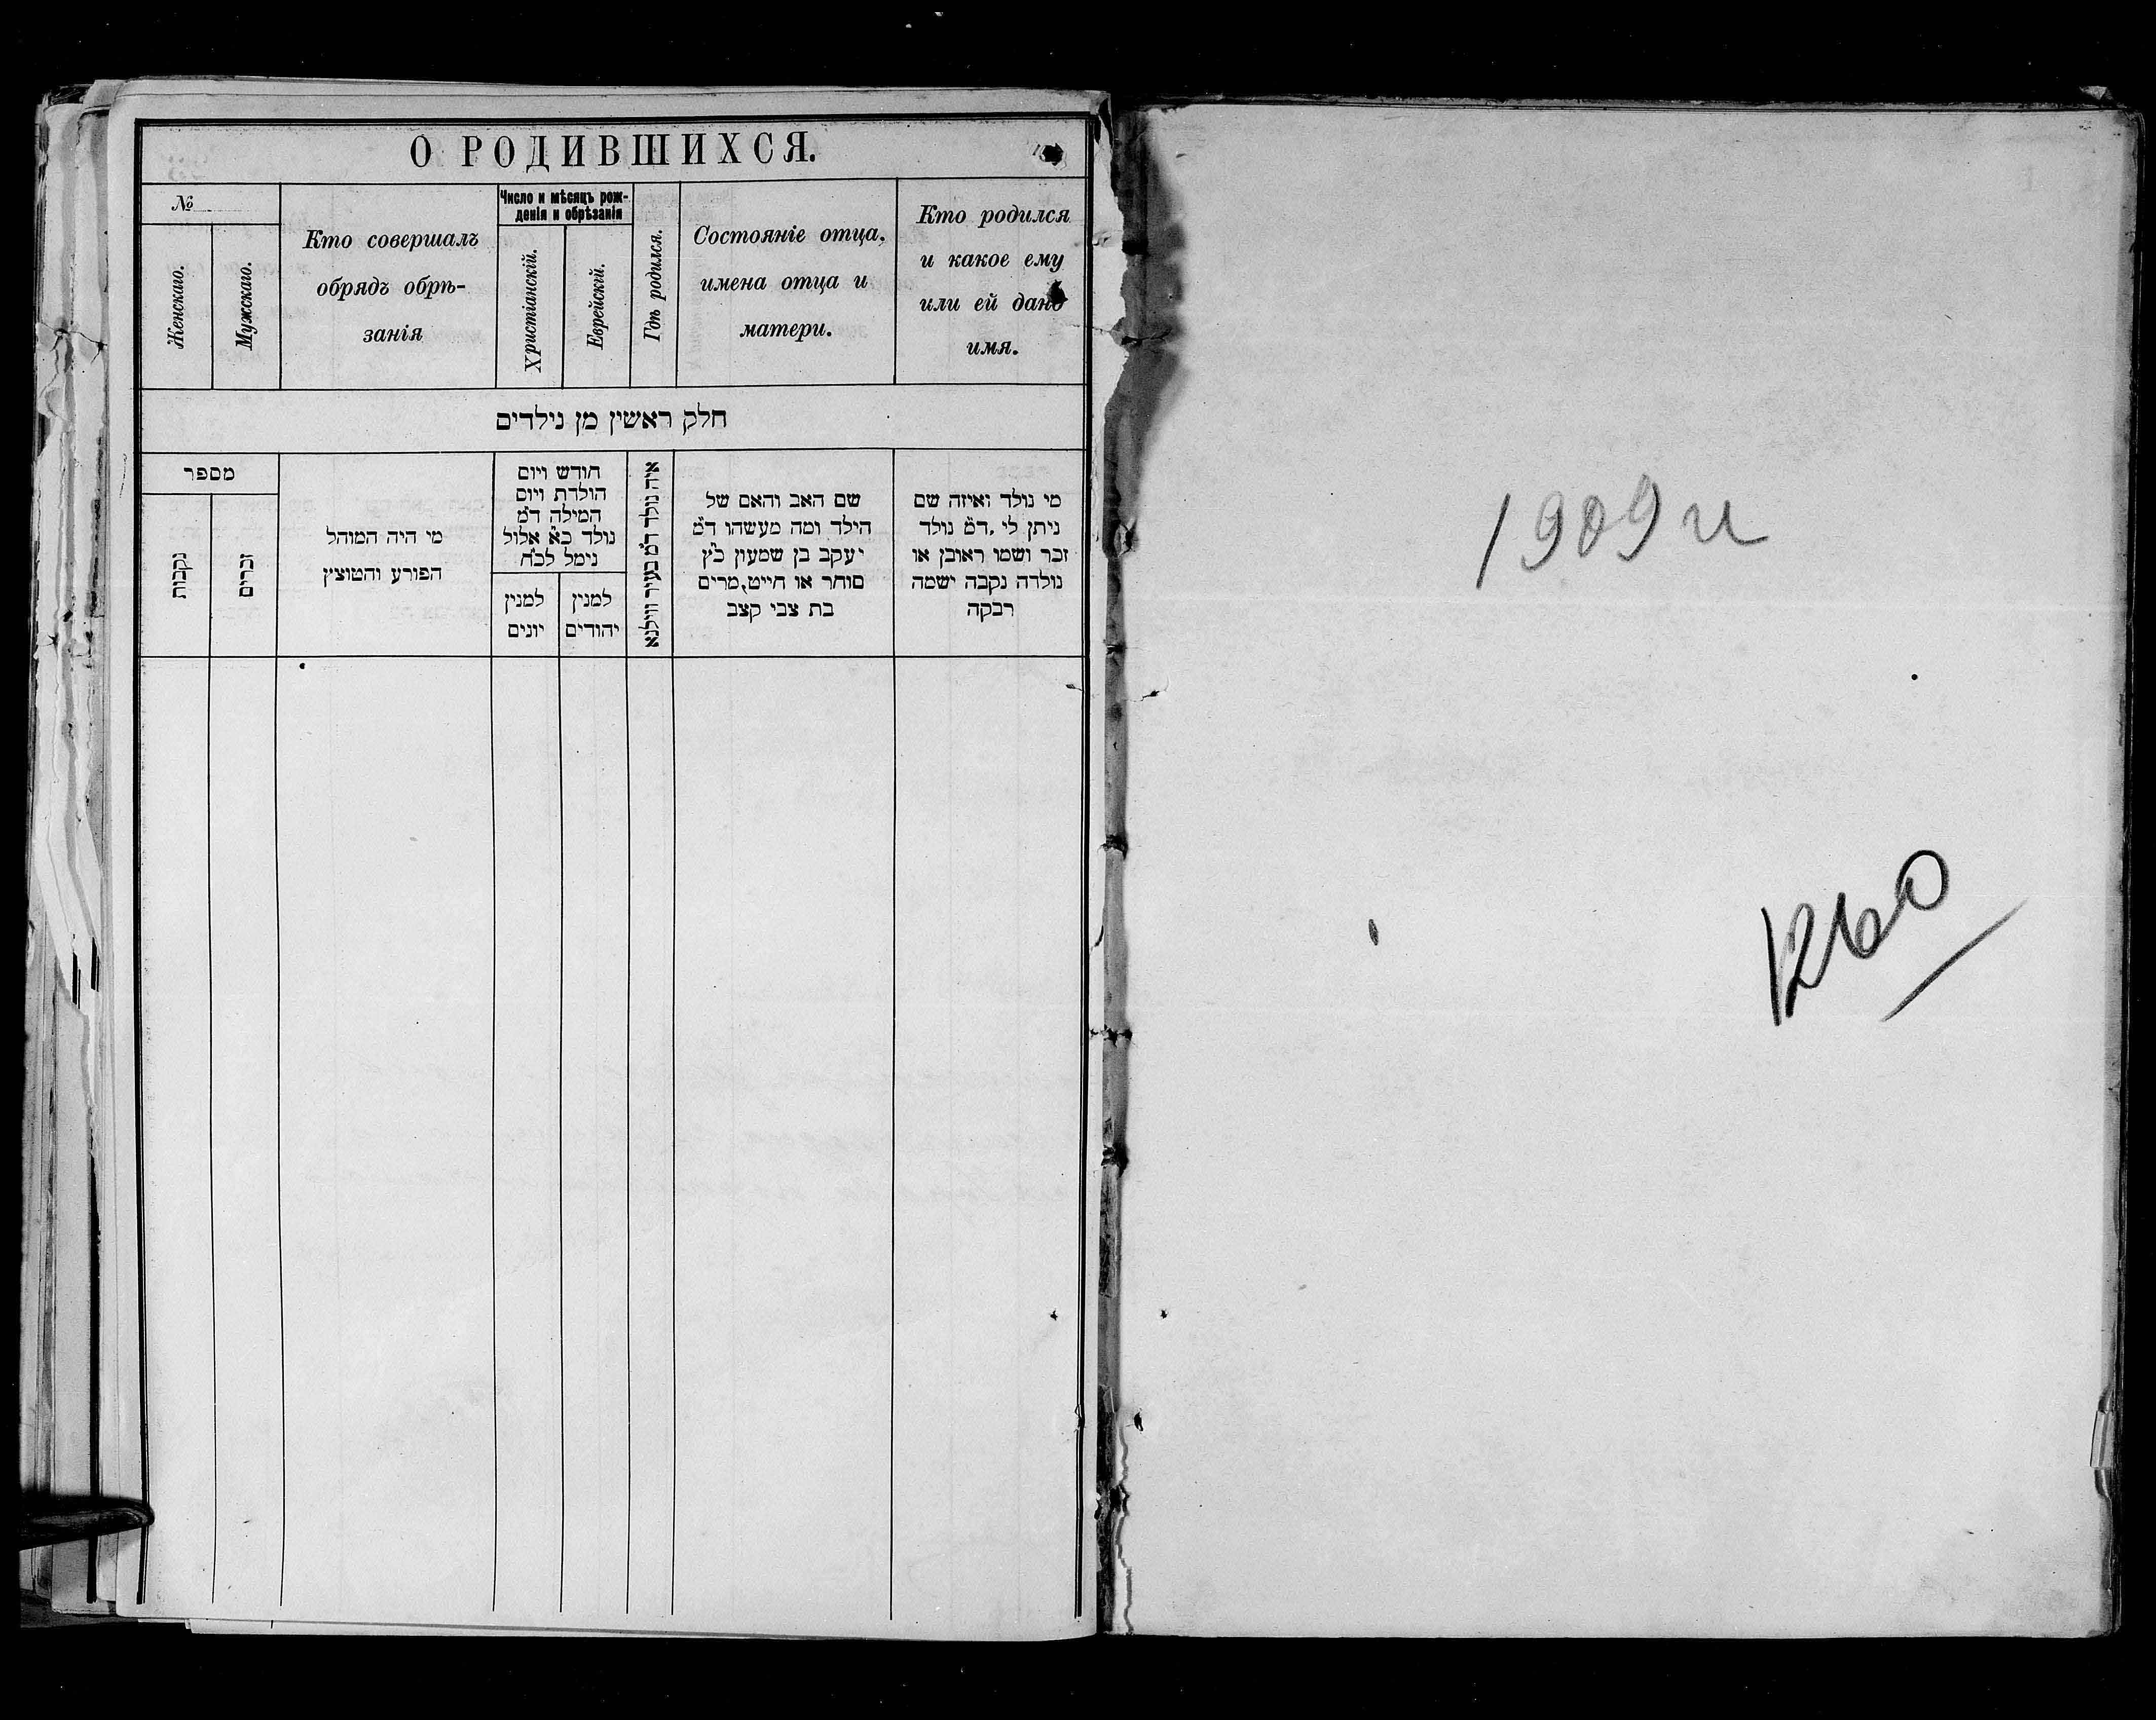 О РОДИВШИХСЯ.
№
Женскаго.
Мужскаго.
Кто совершалъ
обрядъ обрѣ-
занія
Число и мѣсяцъ рож-
денія и обрѣзанія
Христіанскій.
Еврейскій.
Гдѣ родился.
Состояніе отца,
имена отца и
матери.
Кто родился
и какое ему
или ей дано
имя.
חלק ראשין מן נילדים
מספר
נקבות
זכרים
מי היה המוהל
הפורע והמוצץ
חודש ויום
הולדת ויום
המילה ד״מ
נולד כ״א אלול
נימל לכ״ח
למנין
יונים
למנין
יהודים
איה נולד ד״מ בעיר ווילנא
שם האב והאם של
הילד ומה מעשהו ד״מ
יעקב בן שמעון כ״ץ
סוחר או חייט, מרים
בת צבי קצב
מי נולד ואיזה שם
ניתן לי, ד״מ נולד
זכר ושמו ראובן או
נולדה נקבה ישמה
רבקה
1909 г
1260